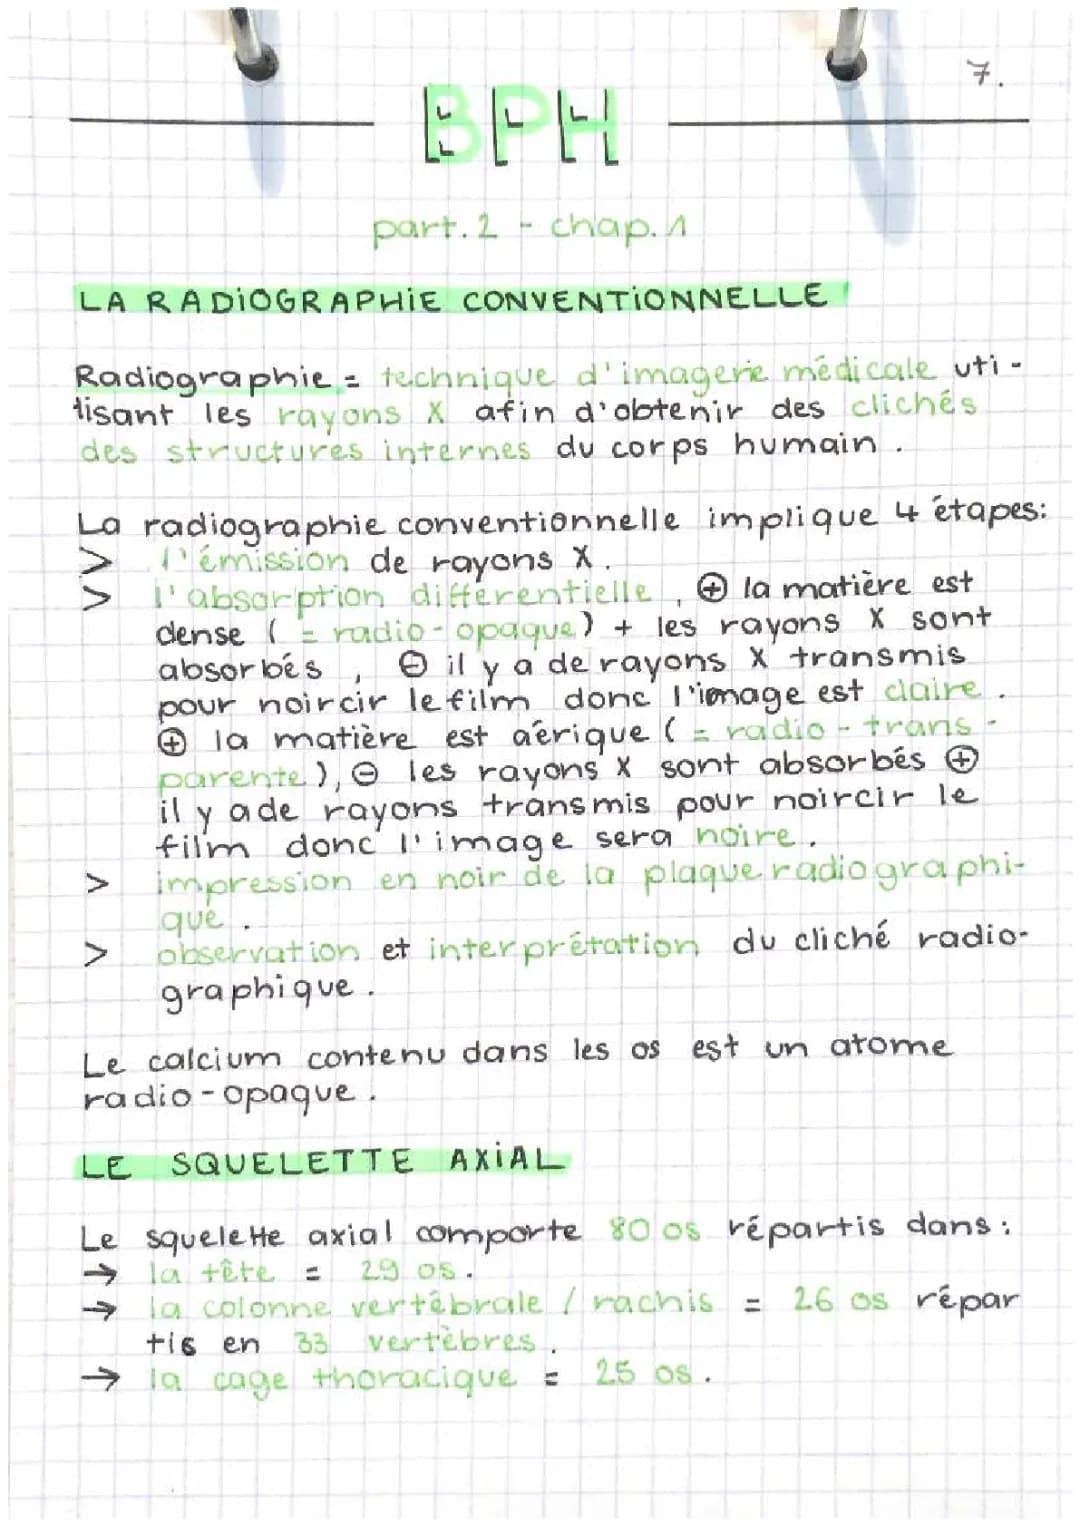 7.
BPH
part.2 - chap.1
LA RADIOGRAPHIE CONVENTIONNELLE
Radiographie = technique d'imagerie médicale uti-
lisant les rayons X afin d'obtenir des clichés
des structures internes du corps humain.
La radiographie conventionnelle implique 4 étapes:
> l'émission de rayons X.
> l'absorption différentielle, ⊕ la matière est
dense (= radio-opaque) + les rayons X sont
absorbés, ⊖ il y a de rayons X transmis
pour noircir le film donc l'image est claire.
⊕ la matière est aérique (= radio-trans-
parente), ⊖ les rayons X sont absorbés ⊕
il y a de rayons transmis pour noircir le
film donc l'image sera noire.
> impression en noir de la plaque radiographi-
que.
> observation et interprétation du cliché radio-
graphique.
Le calcium contenu dans les os est un atome
radio-opaque.
LE SQUELETTE AXIAL
Le squelette axial comporte 80 os répartis dans:
→ la tête = 29 os.
→ la colonne vertébrale / rachis = 26 os répar
tis en 33 vertèbres.
→ la cage thoracique = 25 os.